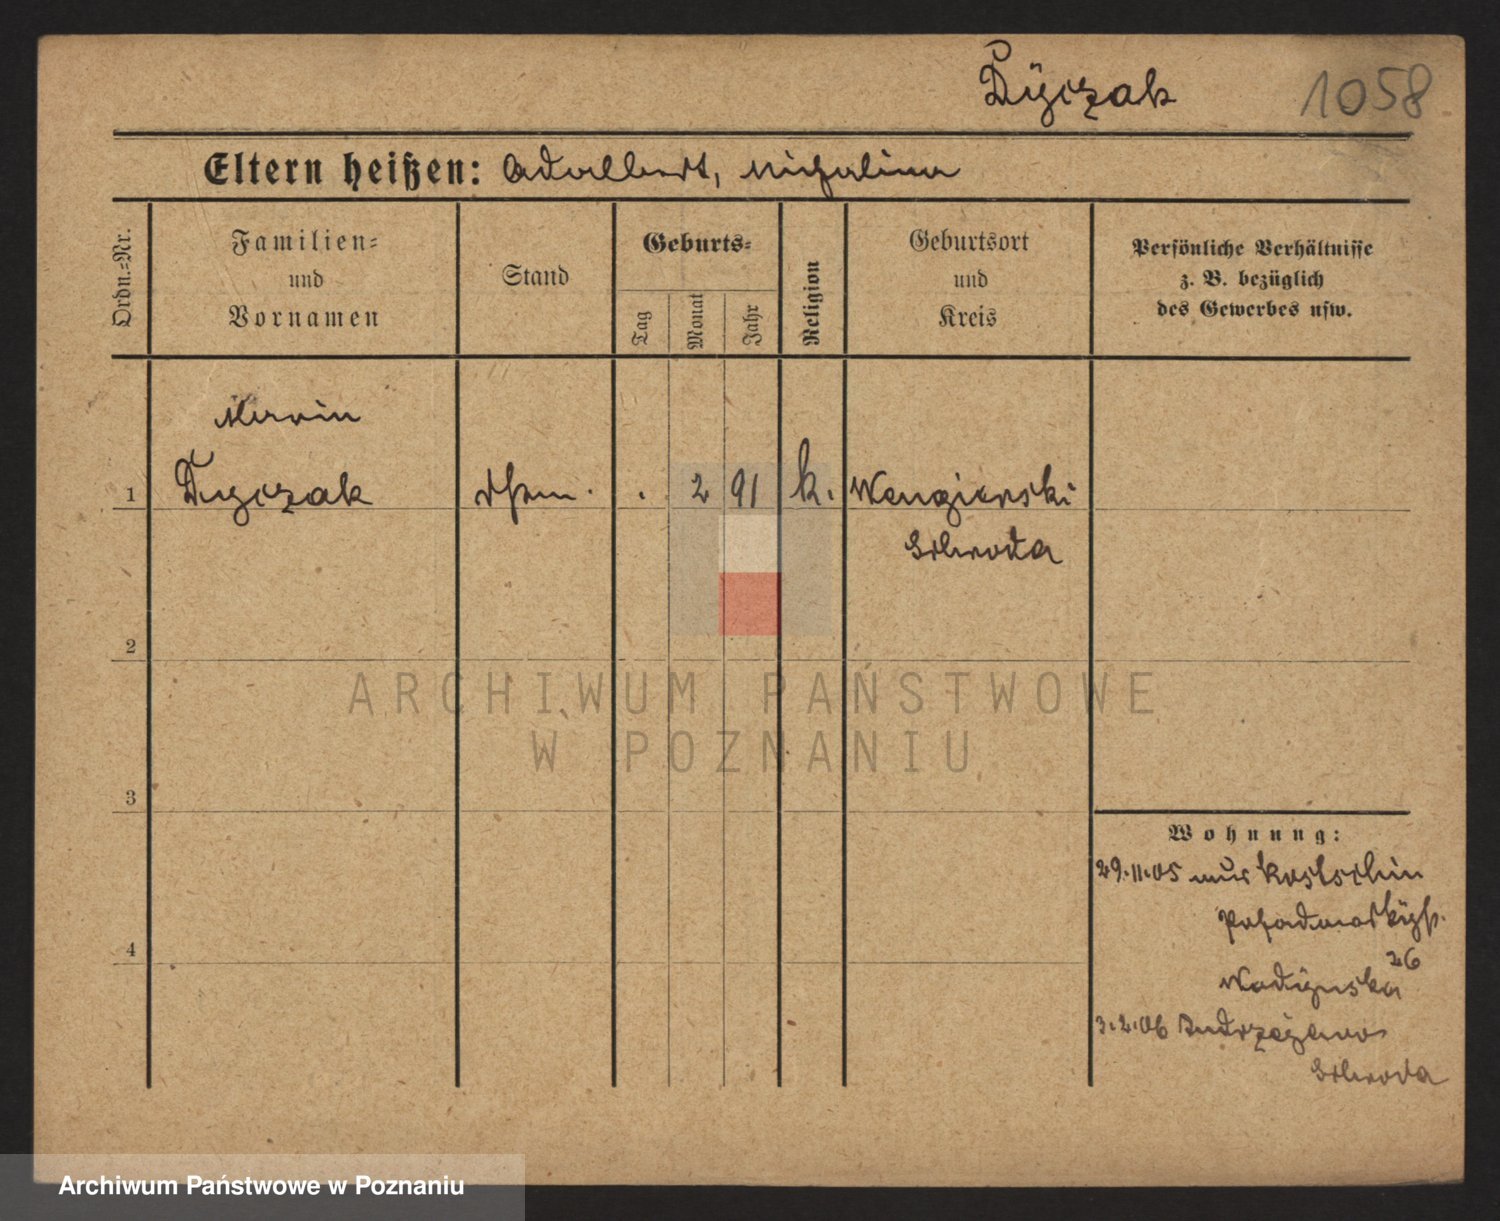 Dyczak 1058
Eltern heißen: Adalbert, Michalina
Ordn.-Nr.
Familien-
und
Vornamen
Stand
Geburts-
Tag
Monat
Jahr
Religion
Geburtsort
und
Kreis
Persönliche Verhältnisse
z. B. bezüglich
des Gewerbes usw.
Dyczak
1
. 2 91 k. Wengierski
Schroda
2
ARCHIWUM PAŃSTWOWE
W POZNANIU
3
Wohnung:
29.11.05 aus Kostschin
4
26
3.2.06
Schroda
Archiwum Państwowe w Poznaniu